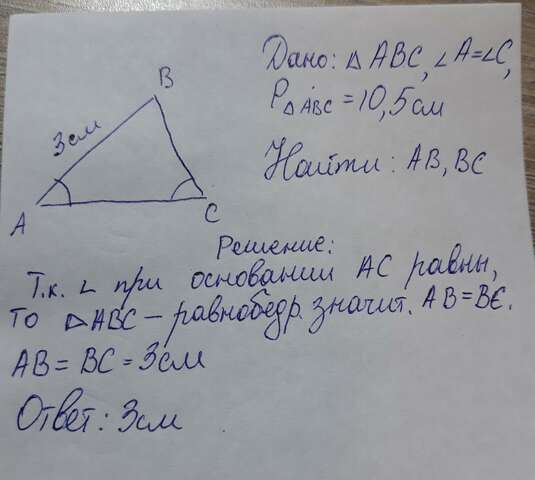 Дано: △ ABC, ∠A=∠C,
P△ABC = 10,5 см
Найти: AB, BC
B
3 см
A
C
Решение:
Т.к. ∠ при основании AC равны,
то △ABC – равнобедр. значит. AB = BC.
AB = BC = 3 см
Ответ: 3 см